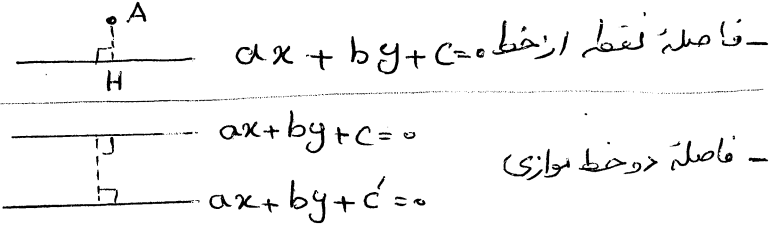 A
- فاصلهٔ نقطه از خط ax + by + c = ۰
H
ax + by + c = ۰
- فاصلهٔ دو خط موازی
ax + by + c' = ۰